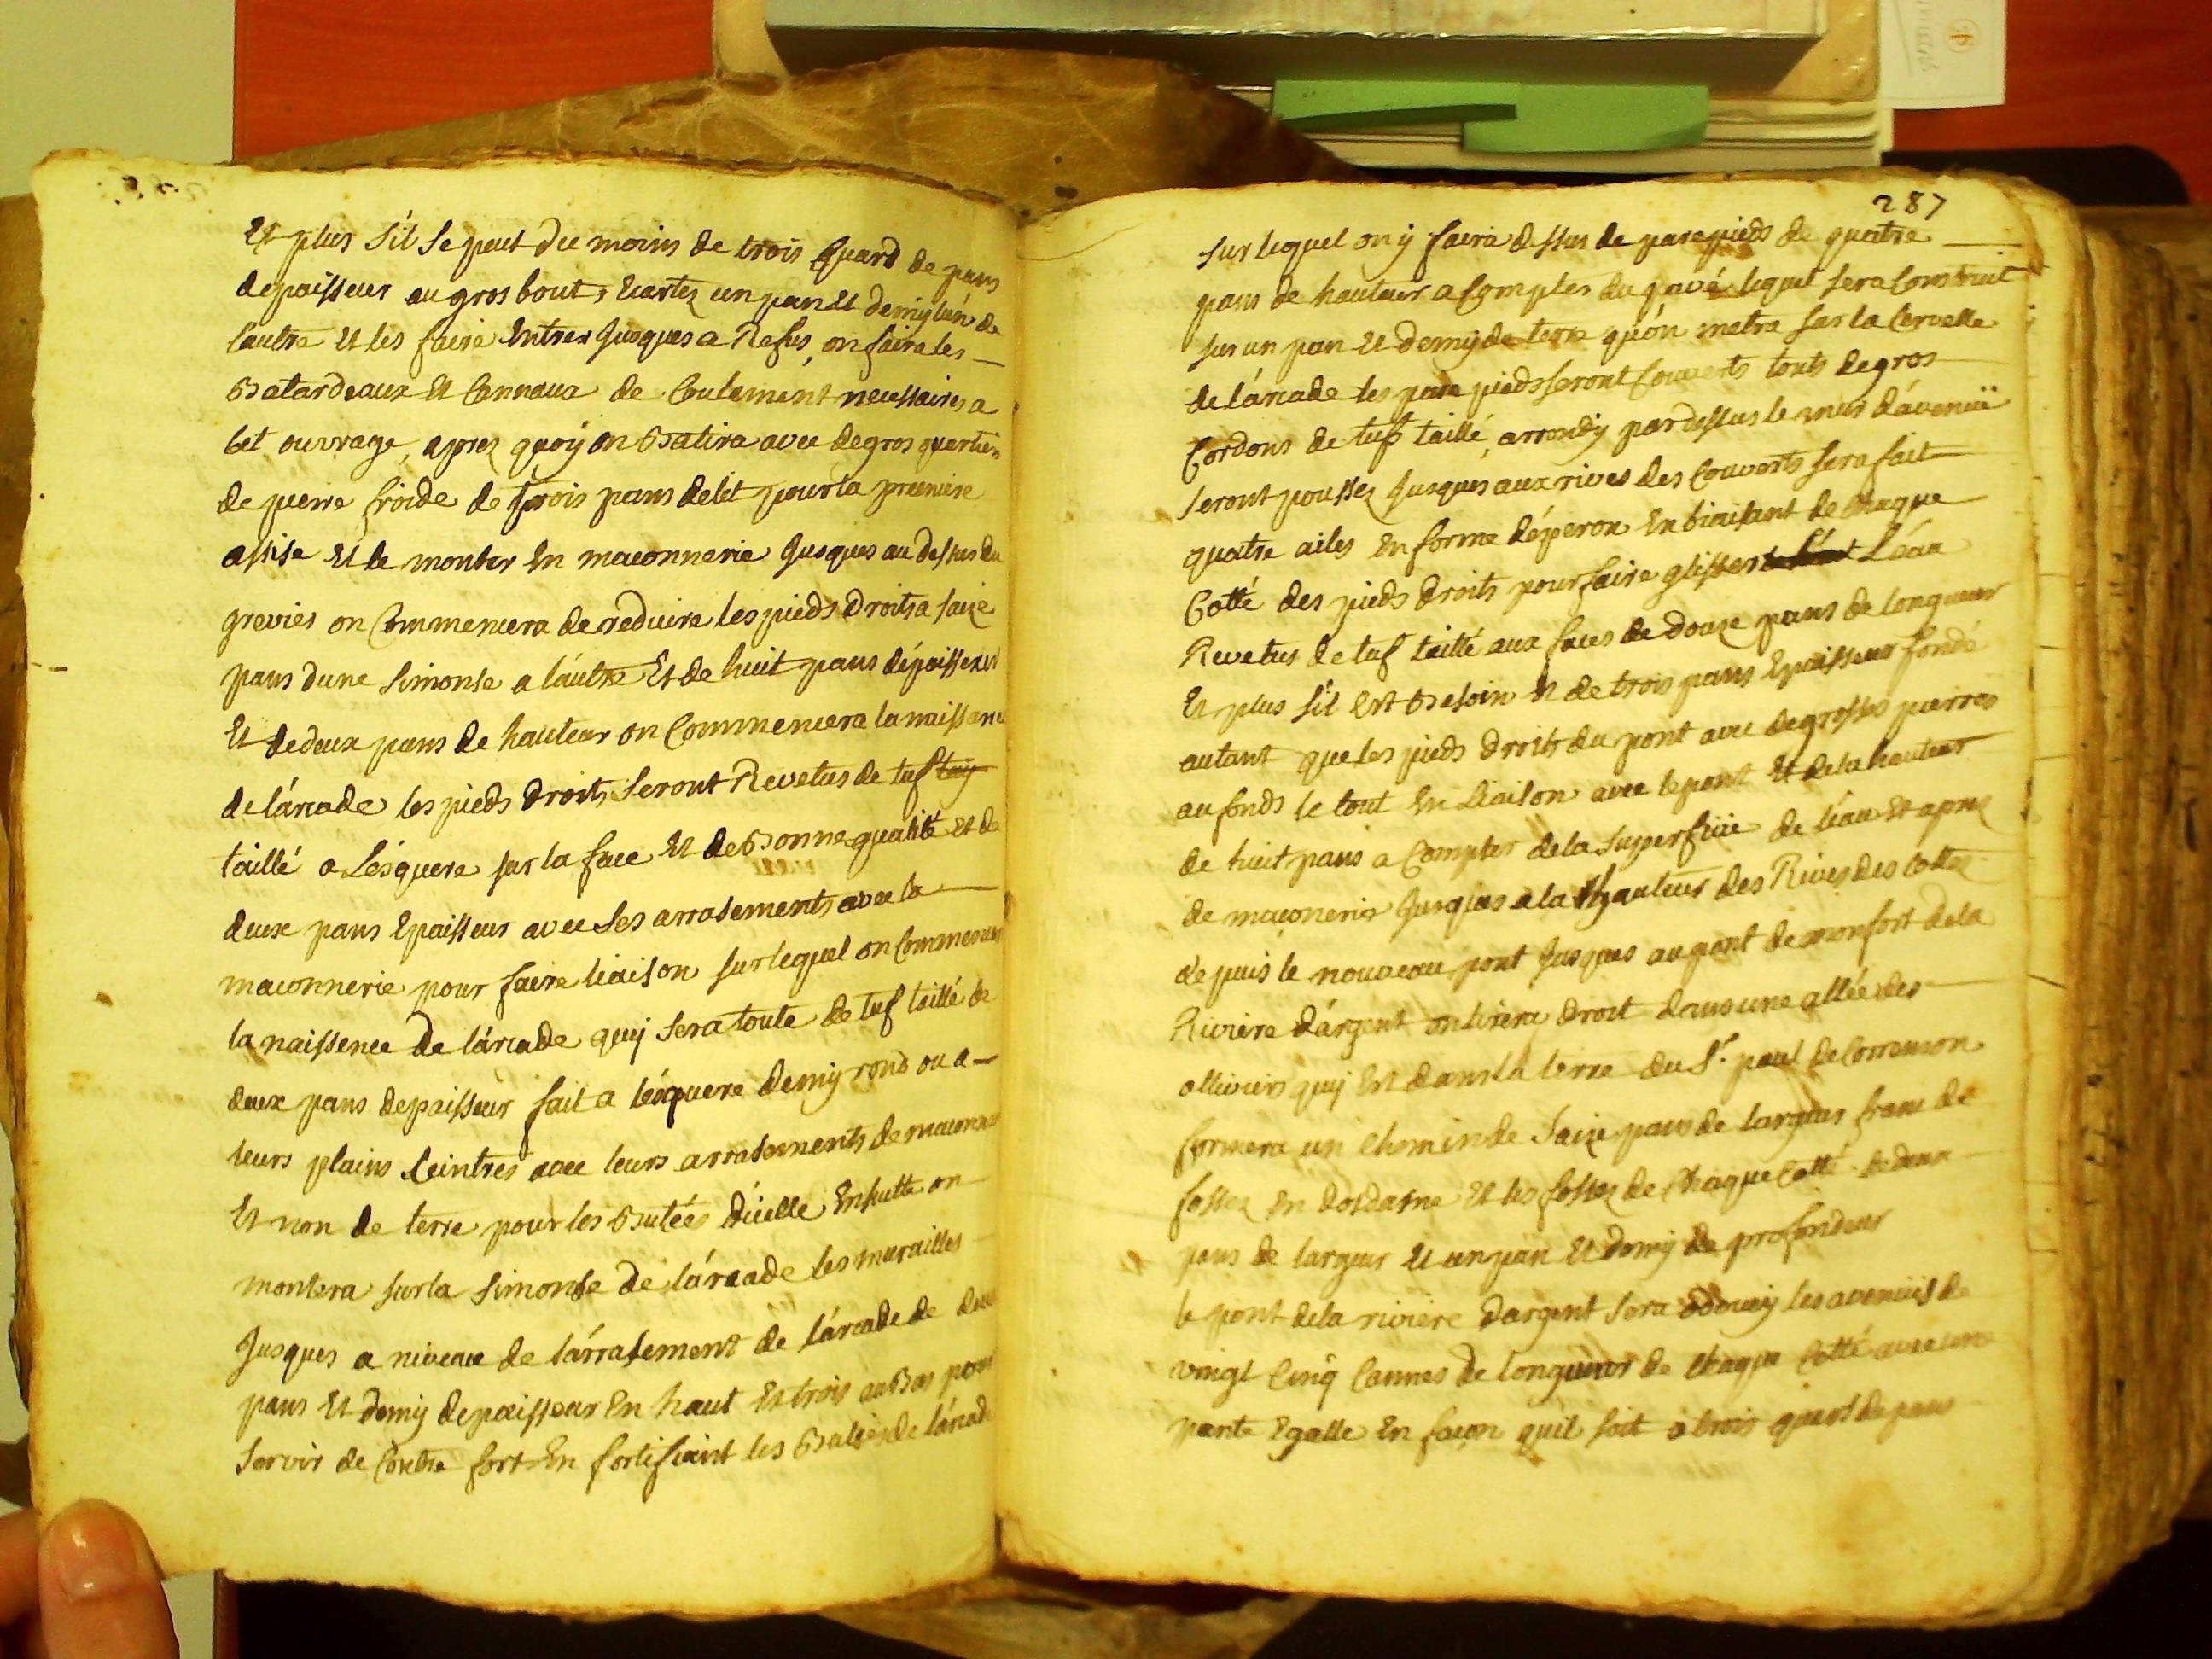 Et plus s'il se peut du moins de trois quard de pans
depaisseur au gros bout, Ecartez un pan Et demy l'ún de
lautre Et les faire Entrer jusques a Refus, on faira les
Batardeaux Et Cannaux de Coulement necessaires a
cet ouvrage, aprez quoy on Batira avec de gros quartiers
de pierre froide de trois pans de lit pour la premiere
assise Et le monter En maconnerie jusques au dessus du
gravier on Commencera de reduire les pieds droits a saize
pans dune simonse a láutre Et de huit pans dépaisseur
Et de deux pans de hauteur on Commencera la naissance
de lárcade les pieds droits seront Revetus de tuf tay
taillé a Lésquere sur la face Et de Bonne qualité et de
deux pans Epaisseur avec ses arrasements avec la
maconnerie pour faire liaison sur lequel on Commencera
la naissence de lárcade quy sera toute de tuf taillé de
deux pans depaisseur fait a lésquere demy rond ou a
leurs plains Ceintres avec leurs arrasements de maconnerie
Et non de terre pour les Butées dicelle Ensuitte on
montera sur la simonse de lárcade les murailles
jusques a niveau de lárrasement de lárcade de deux
pans Et demy depaisseur En haut Et trois au Bas pour
servir de Contre fort En fortifiant les Butées de lárcade
287
sur lequel on y faira dessus de parepieds de quatre
pans de hauteur a Compter du pavé lequel sera Construit
sur un pan Et demy de terre qu'ón metra sur la Cervelle
de lárcade les pare pieds seront Couverts touts de gros
Cordons de tuf taillé, arrondy par dessus le mur dávenüe
seront poussez jusques aux rives des Couverts sera fait
quatre ailes En forme déperon En biaisant de Chaque
Cotté des pieds droits pour faire glisser Léau
Revetus de tuf taillé aux faces de douze pans de longueur
Et plus s'il Est Besoin Et de trois pans Epaisseur fondé
autant que les pieds droits du pont avec de grosses pierres
au fonds le tout En Liaison avec le pont Et de la hauteur
de huit pans a Compter de la superficie de léau Et aprez
de maçonerie jusques a la hauteur des Rives des Cottez
depuis le nouveau pont jusques au pont de monfort de la
Riviere dárgent on tirera droit dans une allée des
olliviers quy Est dans la terre du Sr. paul de Corremon
formera un Chemin de Saize pans de largeur franc de
fossez En dosdasne Et les fossez de Chaque Cotté de deux
pans de largeur Et un pan Et demy de profondeur
le pont de la riviere dargent sera adoucy les avenües de
vingt Cinq Cannes de longueur de chaque Cotté avec une
pante Egalle En façon quil soit a trois quart de pans